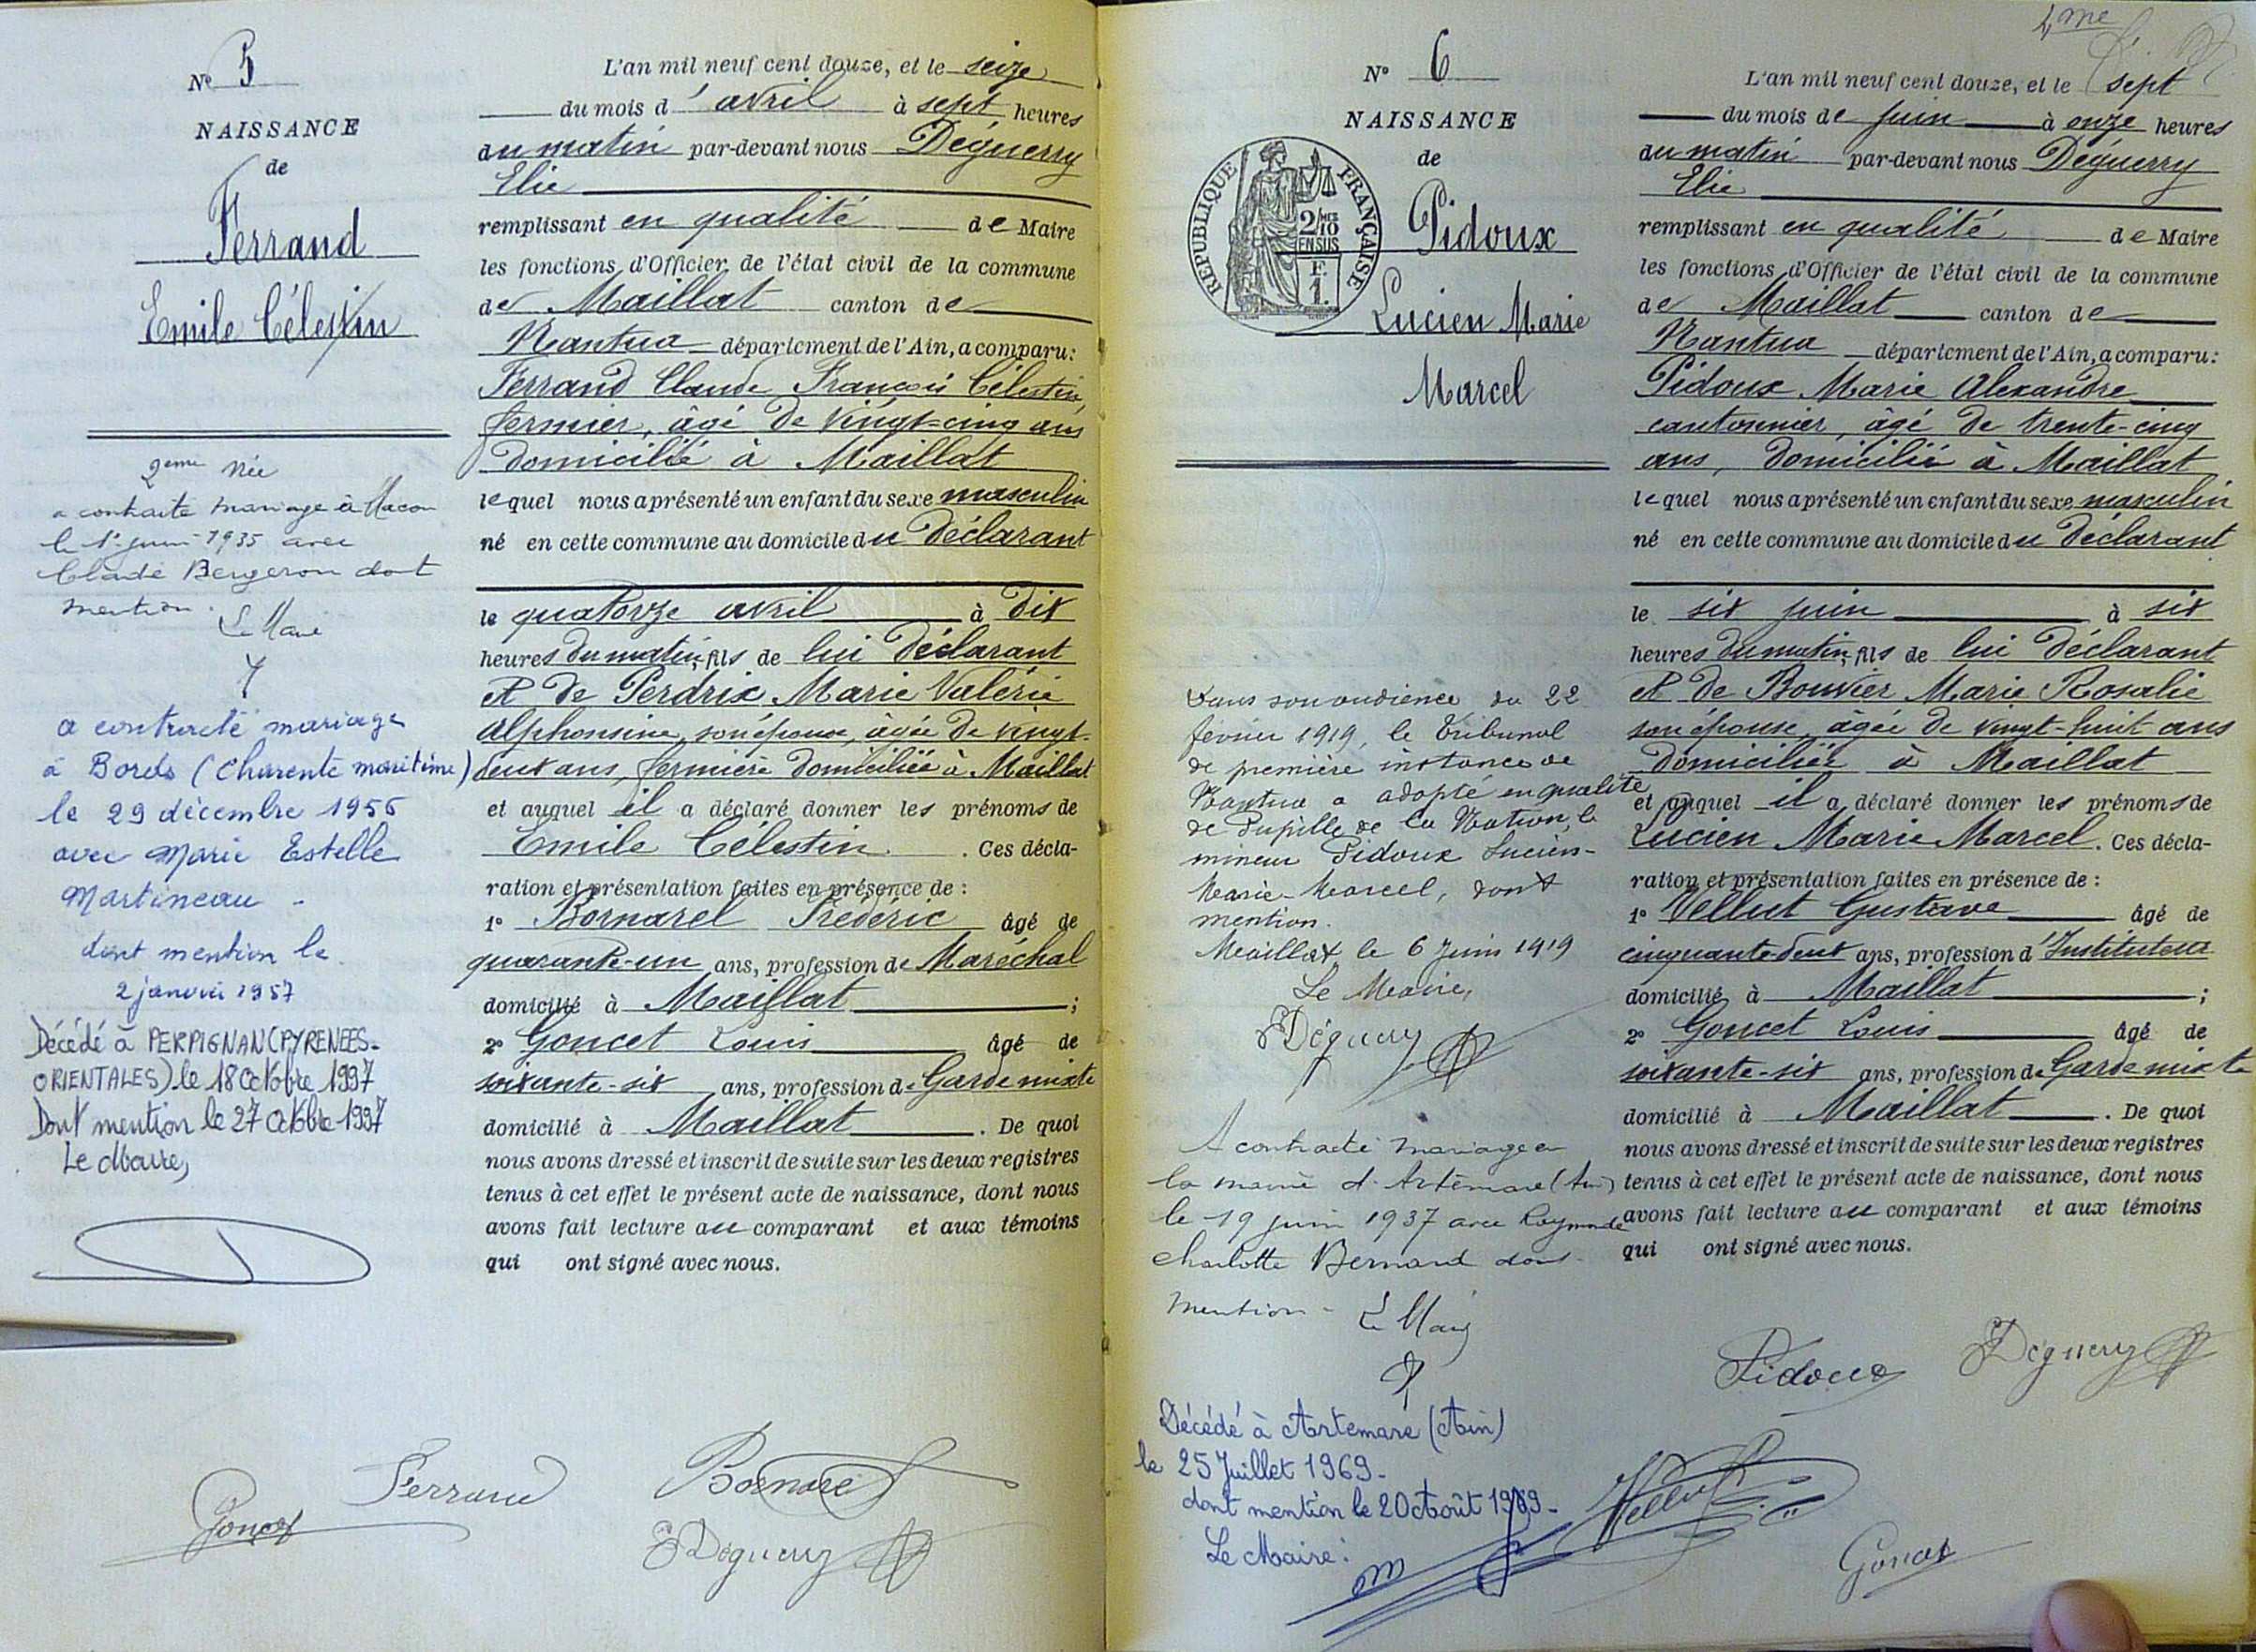 N° 5
NAISSANCE
de
Ferrand
Emile Célestin
2eme Née
a contracté mariage à Macon
le 1er juin 1935 avec
Claude Bergeron dont
mention.
Le Maire
a contracté mariage
à Bords (Charente maritime)
le 29 décembre 1956
avec Marie Estelle
Martineau -
dont mention le
2 janvier 1957
Décédé à PERPIGNAN (PYRENEES-
ORIENTALES) le 18 Octobre 1997
Dont mention le 27 Octobre 1997
Le Maire,
L'an mil neuf cent douze, et le seize
du mois d'avril à sept heures
du matin par-devant nous Déguerry
Elie
remplissant en qualité de Maire
les fonctions d'Officier de l'état civil de la commune
de Maillat canton de
Nantua département de l'Ain, a comparu:
Ferrand Claude François Célestin,
fermier, âgé de vingt-cinq ans
domicilié à Maillat
lequel nous a présenté un enfant du sexe masculin
né en cette commune au domicile du déclarant
le quatorze avril à dix
heures du matin, fils de lui déclarant
et de Perdrix Marie Valérie
Alphonsine, son épouse, âgée de vingt-
deux ans, fermière domiciliée à Maillat
et auquel il a déclaré donner les prénoms de
Emile Célestin. . Ces décla-
ration et présentation faites en présence de :
1° Bornarel Frédéric âgé de
quarante-un ans, profession de Maréchal
domicilié à Maillat ;
2° Goncet Louis âgé de
soixante-six ans, profession de Garde mixte
domicilié à Maillat . De quoi
nous avons dressé et inscrit de suite sur les deux registres
tenus à cet effet le présent acte de naissance, dont nous
avons fait lecture au comparant et aux témoins
qui ont signé avec nous.
Goncet Ferrand Bornarel
EDéguerry
N° 6
NAISSANCE
de
REPUBLIQUE FRANÇAISE
2/10 MES
EN SUS
F.
1.
Pidoux
Lucien Marie
Marcel
Dans son audience du 22
février 1919, le Tribunal
de première instance de
Nantua a adopté en qualité
de Pupille de la Nation, le
mineur Pidoux Lucien-
Marie-Marcel, dont
mention.
Maillat le 6 Juin 1919
Le Maire,
EDéguerry
A contracté mariage en
la mairie d'Artemare (Ain)
le 19 juin 1937 avec Raymonde
Charlotte Bernard dont
mention - Le Maire
Décédé à Artemare (Ain)
le 25 Juillet 1969 -
dont mention le 20 Août 1969 -
Le Maire :
2me
L'an mil neuf cent douze, et le sept
du mois de juin à onze heures
du matin par-devant nous Déguerry
Elie
remplissant en qualité de Maire
les fonctions d'Officier de l'état civil de la commune
de Maillat canton de
Nantua département de l'Ain, a comparu:
Pidoux Marie Alexandre
cantonnier, âgé de trente-cinq
ans, domicilié à Maillat
lequel nous a présenté un enfant du sexe masculin
né en cette commune au domicile du déclarant
le six juin à six
heures du matin, fils de lui déclarant
et de Bouvier Marie Rosalie
son épouse, âgée de vingt-huit ans
domiciliée à Maillat
et auquel il a déclaré donner les prénoms de
Lucien Marie Marcel. Ces décla-
ration et présentation faites en présence de :
1° Vellut Gustave âgé de
cinquante-deux ans, profession d'Instituteur
domicilié à Maillat ;
2° Goncet Louis âgé de
soixante-six ans, profession de Garde mixte
domicilié à Maillat . De quoi
nous avons dressé et inscrit de suite sur les deux registres
tenus à cet effet le présent acte de naissance, dont nous
avons fait lecture au comparant et aux témoins
qui ont signé avec nous.
Pidoux Déguerry
Vellut
Goncet